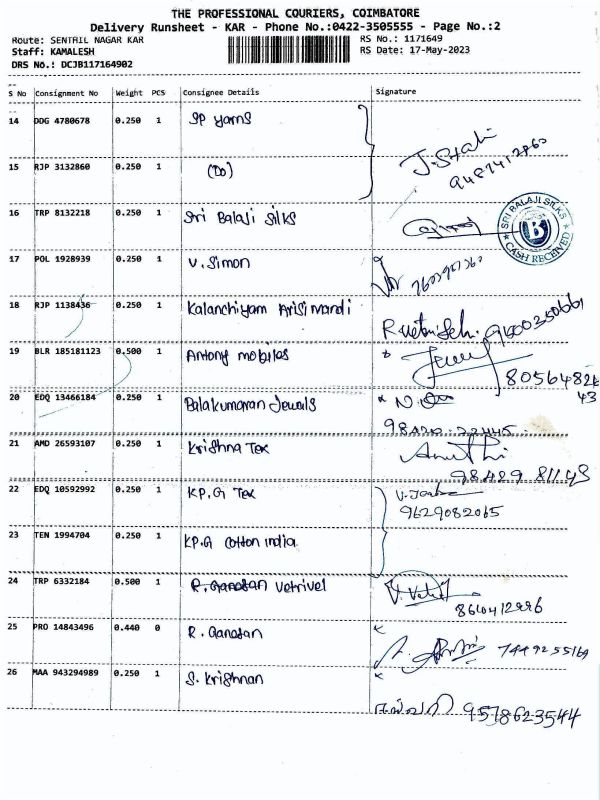 THE PROFESSIONAL COURIERS, COIMBATORE
Delivery Runsheet - KAR - Phone No.:0422-3505555 - Page No.:2
Route: SENTHIL NAGAR KAR RS No.: 1171649
Staff: KAMALESH RS Date: 17-May-2023
DRS No.: DCJB117164902
S No Consignment No Weight PCS Consignee Details Signature
14 DDG 4780678 0.250 1 SP yarns
15 RJP 3132860 0.250 1 (Do)
16 TRP 8132218 0.250 1 Sri Balaji Silks
SRI BALAJI SILKS
B
CASH RECEIVED
17 POL 1928939 0.250 1 V. Simon
18 RJP 1138436 0.250 1 Kalanchiyam Arisi mandi
19 BLR 185181123 0.500 1 Antony mobiles
20 EDQ 13466184 0.250 1 Balakumaran Jewals
21 AMD 26593107 0.250 1 Krishna Tex
98429 81143
22 EDQ 10592992 0.250 1 KP.G Tex
9629082065
23 TEN 1994704 0.250 1 KP.G Cotton india
24 TRP 6332184 0.500 1 R. Ganesan Vetrivel
8610412996
25 PRO 14843496 0.440 0 R. Ganesan
26 MAA 943294989 0.250 1 S. Krishnan
9578623544